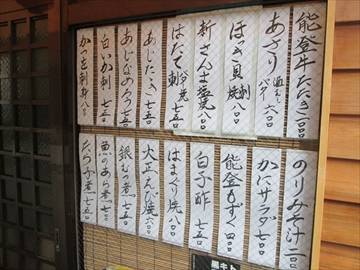 能登牛たたき 一二〇〇
あさり 酒むし バター 六八〇
ほっき貝 刺 焼 八〇〇
新さんま塩焼 八〇〇
はたて 刺 バタ焼 七五〇
あじたたき 七五〇
あじなめろう 七五〇
白いか刺 七五〇
かつを刺身 八〇〇
のりみそ汁 二〇〇
かにサラダ 七〇〇
能登もずく 四〇〇
白子酢 七五〇
はまぐり焼 八〇〇
大正えび焼 六〇〇
銀むつ煮 七五〇
魚のあら煮 七五〇
たら子煮 七五〇